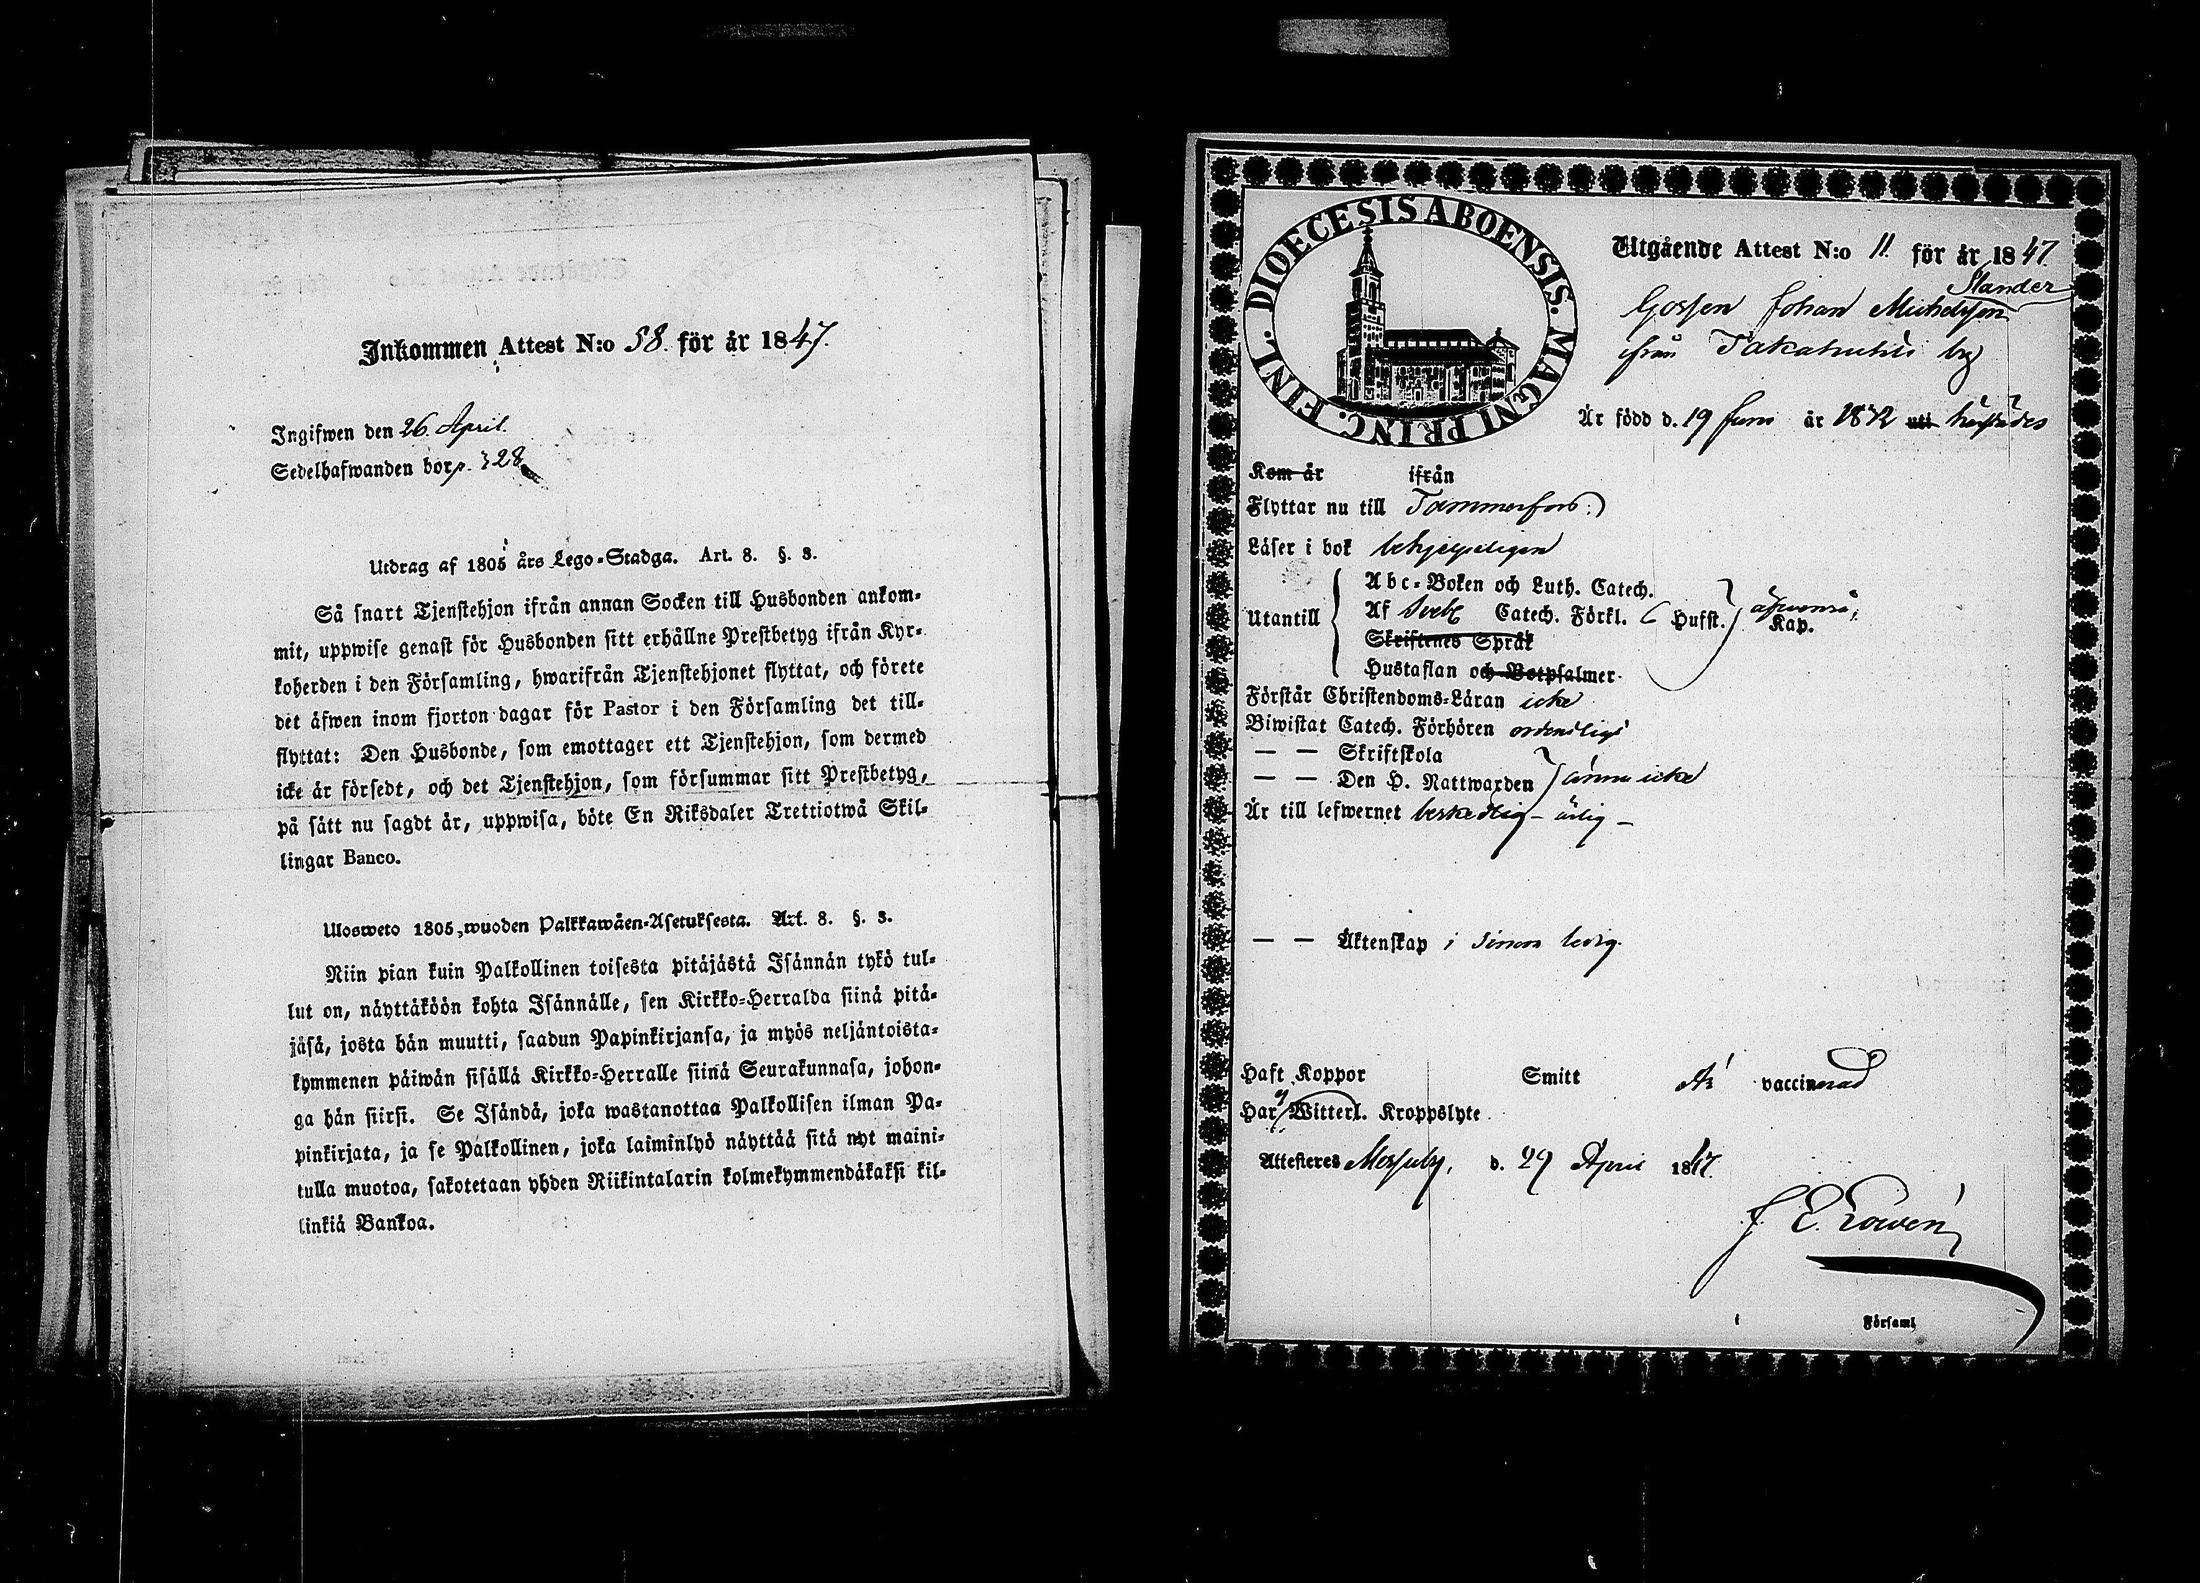 Inkommen Attest N:o 58. för år 1847.
Ingifwen den 26. April.
Sedelhafwanden bor p. 328
Utdrag af 1805 års Lego-Stadga. Art. 8. §. 3.
Så snart Tjenstehjon ifrån annan Socken till Husbonden ankom-
mit, uppwise genast för Husbonden sitt erhållne Prestbetyg ifrån Kyr-
koherden i den Församling, hwarifrån Tjenstehjonet flyttat, och förete
det äfwen inom fjorton dagar för Pastor i den Församling det till-
flyttat: Den Husbonde, som emottager ett Tjenstehjon, som dermed
icke är försedt, och det Tjenstehjon, som försummar sitt Prestbetyg,
på sätt nu sagdt är, uppwisa, böte En Riksdaler Trettiotwå Skil-
lingar Banco.
Ulosweto 1805, wuoden Palkkawäen-Asetuksesta. Art. 8. §. 3.
Niin pian kuin Palkollinen toisesta pitäjästä Isännän tykö tul-
lut on, näyttäköön kohta Isännälle, sen Kirkko-Herralda siinä pitä-
jäsä, josta hän muutti, saadun Papinkirjansa, ja myös neljäntoista-
kymmenen päiwän sisällä Kirkko-Herralle siinä Seurakunnasa, johon-
ga hän siirsi. Se Isändä, joka wastanottaa Palkollisen ilman Pa-
pinkirjata, ja se Palkollinen, joka laiminlyö näyttää sitä nyt maini-
tulla muotoa, sakotetaan yhden Riikintalarin kolmekymmendäkaksi kil-
linkiä Bankoa.
DIOECESIS ABOENSIS. MAGNI PRINC. FINL.
Utgående Attest N:o 11. för år 1847
Gossen Johan Michelsson
ifrån by
Är född d. 19 Juni år 1832 utі härstädes
Kom år ifrån
Flyttar nu till Tammerfors.
Läser i bok behjelpeligen
Utantill
Abc-Boken och Luth. Catech.
Af Sveb. Catech. Förkl. Hufst. Kap.
Skriftenes Språk
Hustaflan och Botpsalmer
Förstår Christendoms-Läran icke
Biwistat Catech. Förhören ordentligt
— — Skriftskola
— — Den H. Nattwarden ännu icke
Är till lefwernet beskedlig - ärlig -
— — Äktenskap i ledig.
Haft Koppor Smitt Är vaccinerad
Har ej Witterl. Kroppslyte
Attesteres d. 29 April 1847.
J. E.
i Församl.